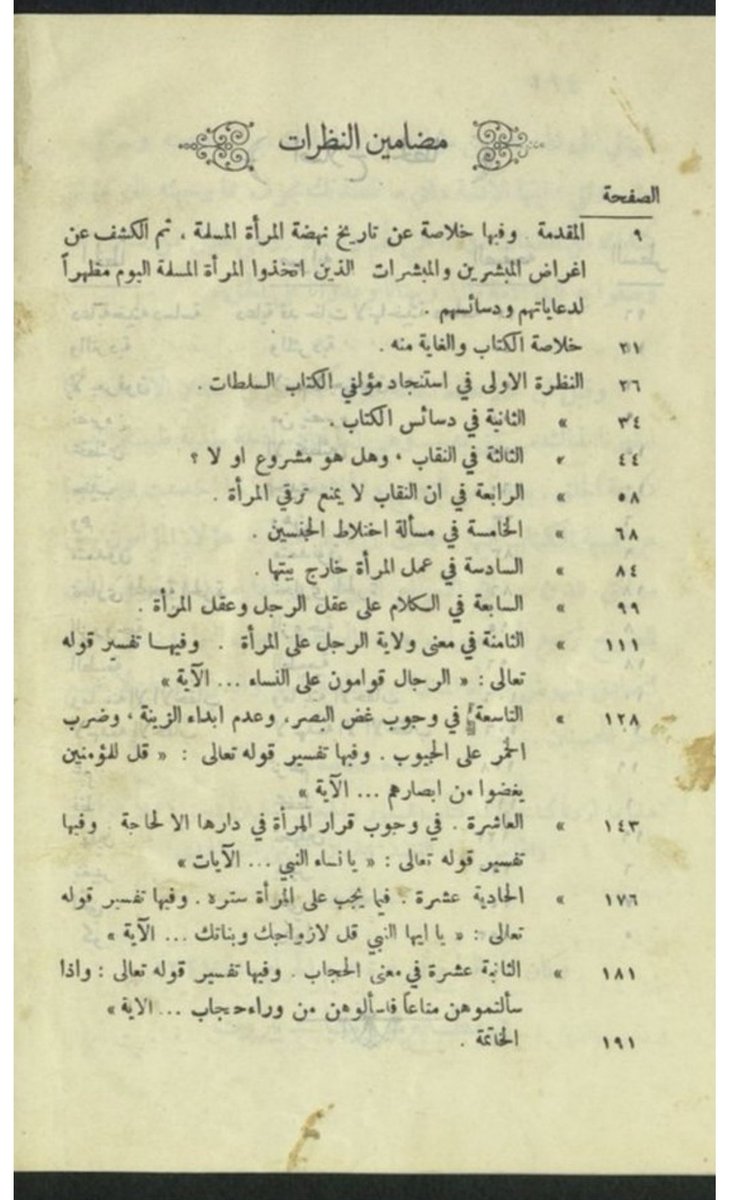 مضامين النظرات
الصفحة
٩ المقدمة . وفيها خلاصة عن تاريخ نهضة المرأة المسلمة ، ثم الكشف عن
اغراض المبشرين والمبشرات الذين اتخذوا المرأة المسلمة اليوم مظهراً
لدعاياتهم ودسائسهم .
٢١ خلاصة الكتاب والغاية منه .
٢٦ النظرة الاولى في استنجاد مؤلفي الكتاب السلطات .
٣٤ » الثانية في دسائس الكتاب .
٤٤ » الثالثة في النقاب ، وهل هو مشروع او لا ؟
٥٨ » الرابعة في ان النقاب لا يمنع ترقي المرأة .
٦٨ » الخامسة في مسألة اختلاط الجنسين .
٨٤ » السادسة في عمل المرأة خارج بيتها .
٩٩ » السابعة في الكلام على عقل الرجل وعقل المرأة .
١١١ » الثامنة في معنى ولاية الرجل على المرأة . وفيهـا تفسير قوله
تعالى : « الرجال قوامون على النساء ... الآية »
١٢٨ » التاسعة في وجوب غض البصر، وعدم ابداء الزينة ، وضرب
الخُمر على الجيوب . وفيها تفسير قوله تعالى : « قل للمؤمنين
يغضوا من ابصارهم ... الآية »
١٤٣ » العاشرة . في وجوب قرار المرأة في دارها الا لحاجة . وفيها
تفسير قوله تعالى : « يا نساء النبي ... الآيات »
١٧٦ » الحادية عشرة . فيما يجب على المرأة ستره . وفيها تفسير قوله
تعالى : « يا ايها النبي قل لازواجك وبناتك ... الآية »
١٨١ » الثانية عشرة في معنى الحجاب . وفيها تفسير قوله تعالى : واذا
سألتموهن متاعاً فاسألوهن من وراء حجاب ... الاية »
١٩١ الخاتمة .